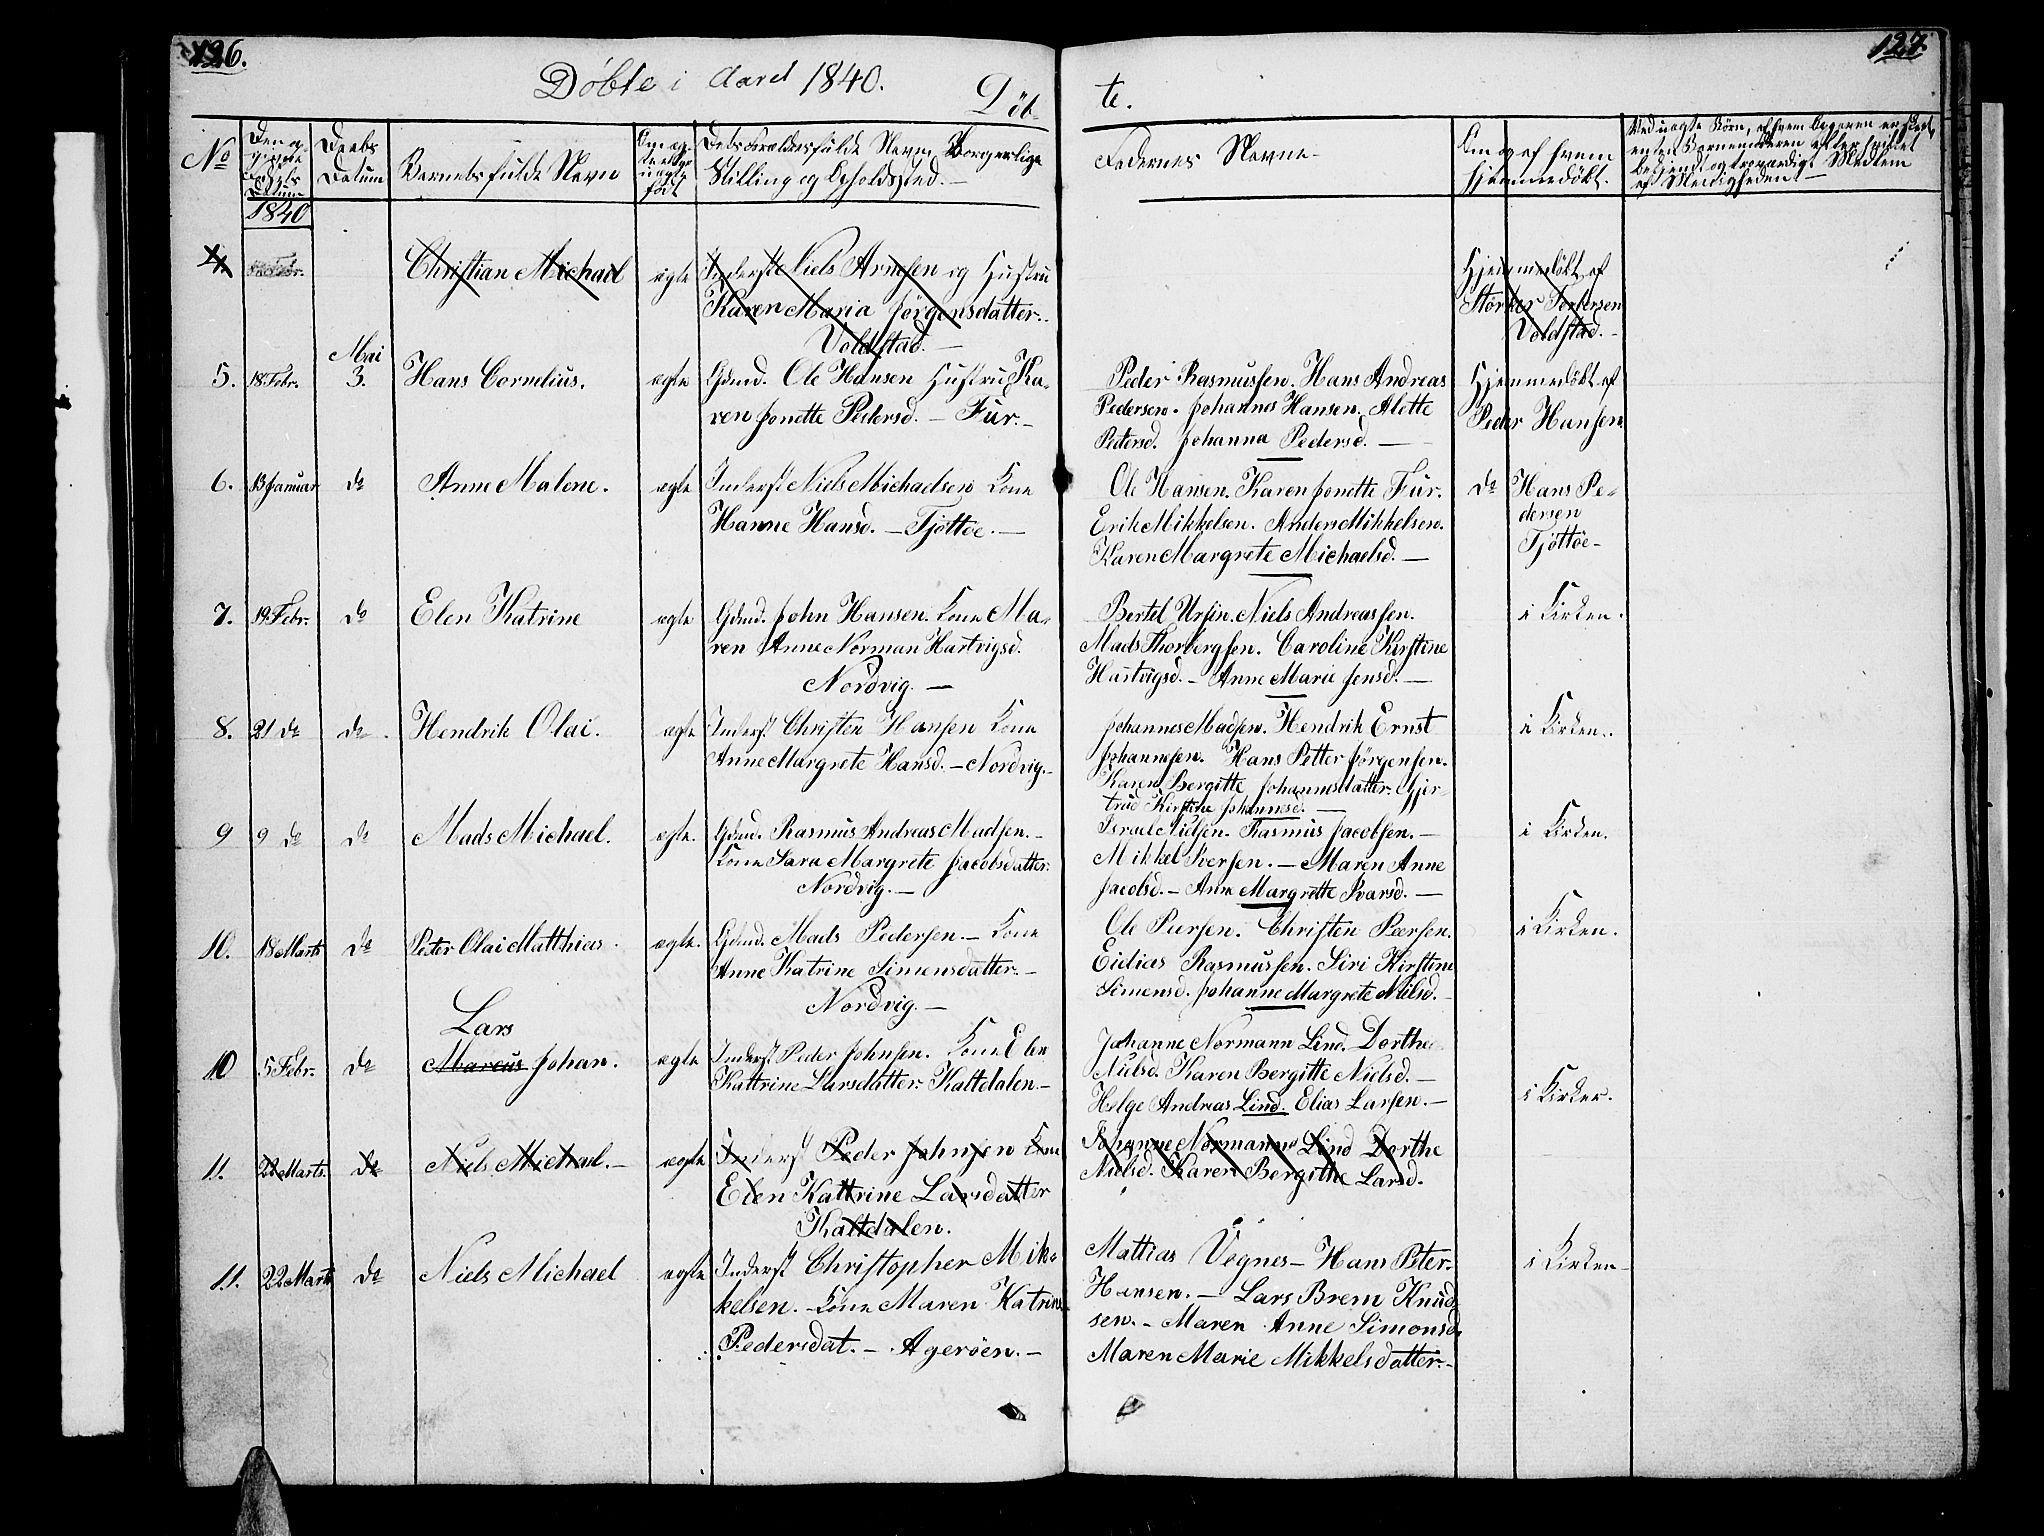 126.
127.
Döbte i Aaret 1840.
Döb
te.
No
Den og
givne
Fødsels
Datum
Daabs
Datum
Barnets fulde Navn
Om æg-
te eller
uægte
født
Dets Forældres fulde Navn, Borgerlige
Stilling og Opholdssted.
Faddernes Navne
Om og af hvem
hjemmedöbt.
Ved uægte Börn, af hvem Opgaven er skeet,
enten Barnemoderen eller hendes
bekjendt og troværdigt Medlem
af Menigheden
1840
4
Christian Michael
ægte
Inderst Niels Arnesen og Hustru
Karen Maria Jörgensdatter.
Voldstad.
Hjemmedöbt af
Störker Torbersen
Voldstad.
5. 18 Febr.
Mai
3.
Hans Cornelius.
ægte
Gdmd. Ole Hansen Hustru Ka-
ren Jonette Pedersd. - Fur.
Peder Rasmussen. Hans Andreas
Pedersen. Johannes Hansen. Alette
Petersd. Johanna Pedersd.
Hjemmedöbt af
Peder Hansen
6. 13 Januar do
Anne Malene.
ægte
Inderst Niels Michaelsen Kone
Hanne Hansd. - Tjöttöe.
Ole Hansen. Karen Jonette Fur.
Erik Mikkelsen. Anders Mikkelsen.
Karen Margrete Michaelsd.
do
Hans Pe-
dersen
Tjöttöe
7. 19 Febr. do
Elen Katrine
ægte
Gdmd. John Hansen. Kone Ma-
ren Anne Norman Hartvigsd.
Nordvig.
Bertel Ursin. Niels Andreassen.
Mads Thorbergsen. Caroline Kirstine
Hartvigsd. - Anne Marie Jensd.
i Kirken.
8. 21 do do
Hendrik Olai.
ægte
Inderst Christen Hansen Kone
Anne Margrete Hansd. - Nordvig.
Johannes Madsen. Hendrik Ernst
Johannesen. Hans Petter Jörgensen.
Karen Bergitte Johannesdatter. Gjer-
trud Kirstine Johannesd.
i Kirken.
9 9 do do
Mads Michael.
ægte.
Gdmd. Rasmus Andreas Madsen.
Kone Sara Margrete Jacobsdatter.
Nordvig.
Israel Nielsen. Rasmus Jacobsen.
Mikkel Iversen. - Maren Anne
Jacobsd. - Anne Margrette Ivarsd.
i Kirken.
10. 18 Marts do
Peter Olai Matthias.
ægte.
Gdmd. Mads Pedersen. - Kone
Anne Katrine Simensdatter.
Nordvig.
Ole Peersen. Christen Peersen.
Eidias Rasmussen. Siri Kirstine
Simensd. Johanne Margrete Nilsd.
i Kirken.
10 5 Febr. do
Lars
Marcus Johan.
ægte
Inderst Peder Johnsen. Kone Elen
Kattrine Larsdatter. Kaltdalen
Johanne Normann Lind. Dorthe
Nielsd. Karen Bergitte Nielsd.
Helge Andreas Lind. Elias Larsen.
i Kirken.
11. 22 Marts. do
Niels Michael.
ægte
Inderst Peder Johnsen Kone
Elen Kattrine Larsdatter
Kaltdalen.
Johanne Normann Lind Dorthe
Nielsd. Karen Bergithe Larsd.
11. 22 Marts do
Niels Michael
ægte
Inderst Christopher Mik-
kelsen. Kone Maren Katrine
Pedersdat. - Ageröen.
Mattias Vegnes - Hans Peter
Hansen. - Lars Brem Knud-
sen. - Maren Anne Simonsd.
Maren Marie Mikkelsdatter.
i Kirken